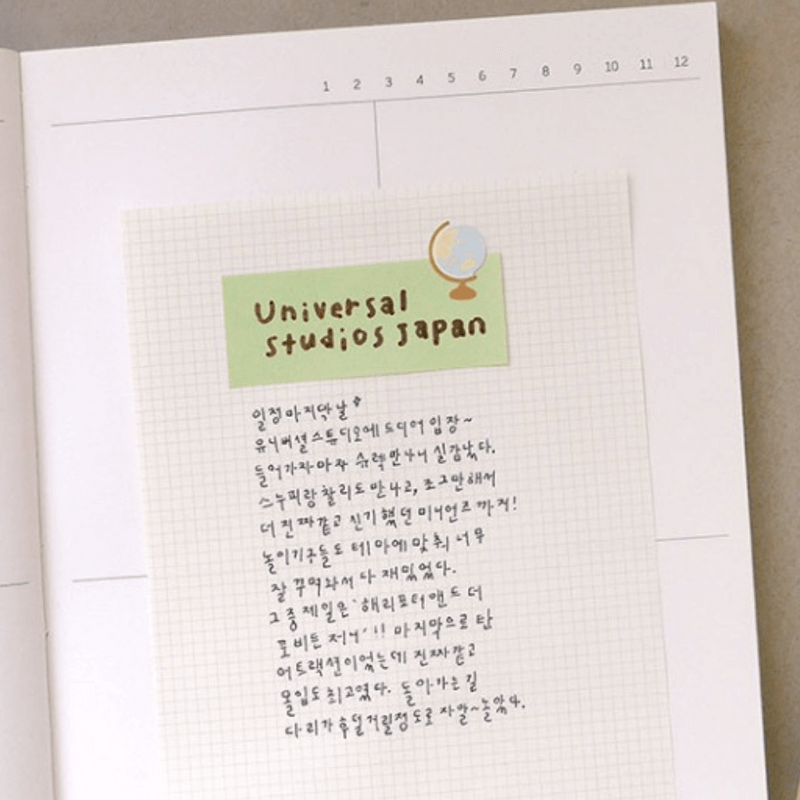 1 2 3 4 5 6 7 8 9 10 11 12
Universal
studios Japan
일정 마지막 날
유니버셜 스튜디오에 드디어 입장~
들어가자마자 슈렉 만나니 실감났다.
스누피랑 찰리도 만나고, 조그만해서
더 진짜같고 신기했던 미니언즈까지!
놀이기구들도 테마에 맞춰 너무
잘 꾸며놔서 다 재밌었다.
그 중 제일은 '해리포터 앤 드 더
포비든 저니' !! 마지막으로 탄
어트랙션이었는데 진짜같고
몰입도 최고였다. 돌아가는 길
다리가 후덜거릴정도로 자알~놀았다.